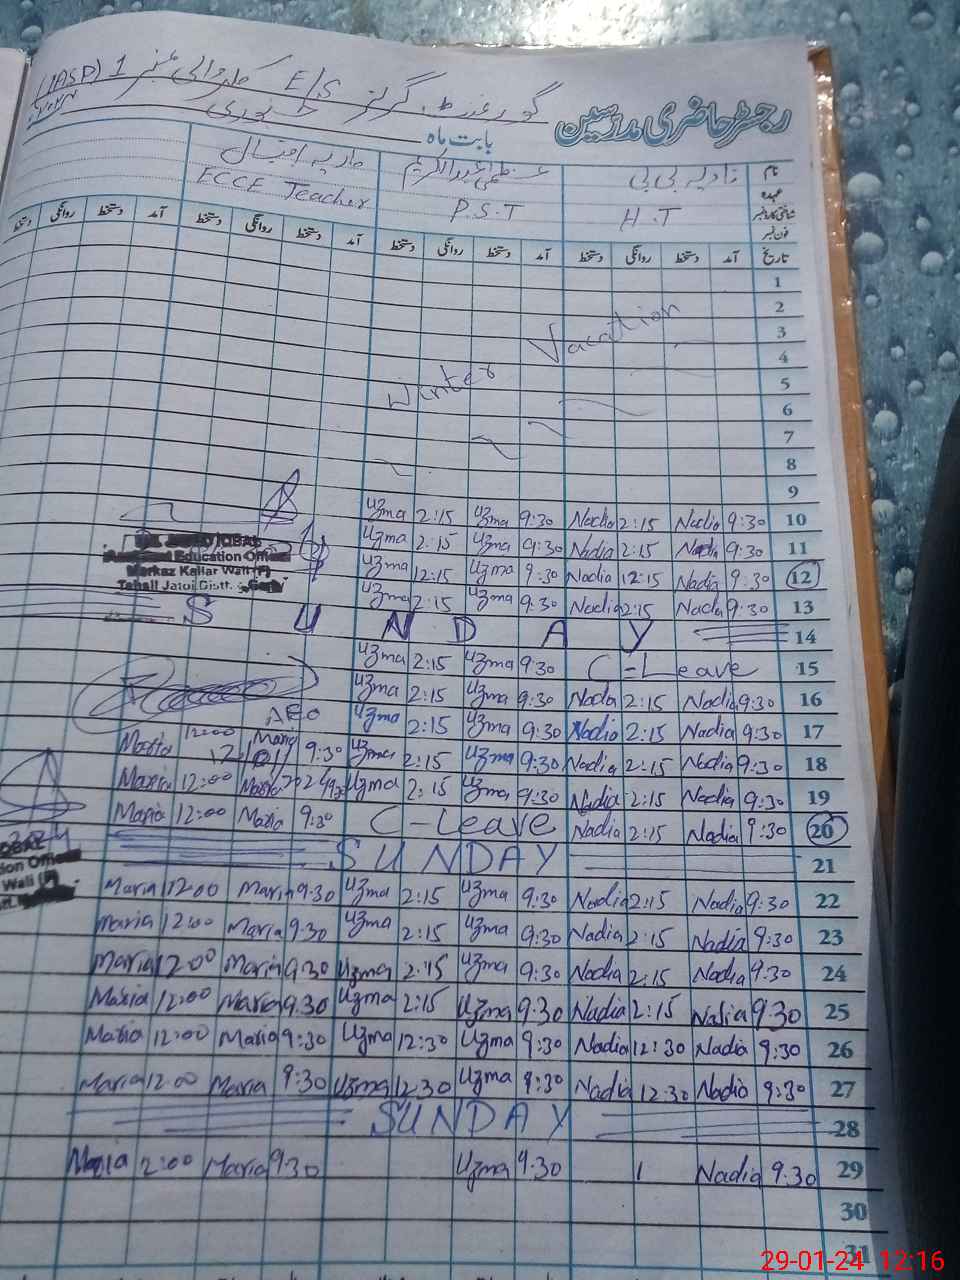 گورنمنٹ گرلز E/S کلر والی نمبر 1 (IASP)
رجسٹر حاضری مدرسین
بابت ماہ جنوری
نام نادیہ بی بی عظمیٰ عبدالکریم ماریہ اقبال
عہدہ
شناختی کارڈ نمبر H.T P.S.T ECCE Teacher
فون نمبر
تاریخ آمد دستخط روانگی دستخط آمد دستخط روانگی دستخط آمد دستخط روانگی دستخط آمد دستخط روانگی دستخط
1
2
Vacation 3
4
Winter 5
6
7
8
9
Uzma 2:15 Uzma 9:30 Nadia 2:15 Nadia 9:30 10
IQBAL
Uzma 2:15 Uzma 9:30 Nadia 2:15 Nadia 9:30 11
Assistant Education Officer
Markaz Kallar Wali (F)
Uzma 12:15 Uzma 9:30 Nadia 12:15 Nadia 9:30 12
Tehsil Jatoi Distt.
Uzma 2:15 Uzma 9:30 Nadia 2:15 Nadia 9:30 13
SUNDAY 14
Uzma 2:15 Uzma 9:30 C-Leave 15
Uzma 2:15 Uzma 9:30 Nadia 2:15 Nadia 9:30 16
AEO Uzma 2:15 Uzma 9:30 Nadia 2:15 Nadia 9:30 17
Maria 12:00 Maria 9:30 Uzma 2:15 Uzma 9:30 Nadia 2:15 Nadia 9:30 18
Maria 12:00 Maria Uzma 2:15 Uzma 9:30 Nadia 2:15 Nadia 9:30 19
Maria 12:00 Maria 9:30 C-Leave Nadia 2:15 Nadia 9:30 20
SUNDAY 21
Maria 12:00 Maria 9:30 Uzma 2:15 Uzma 9:30 Nadia 2:15 Nadia 9:30 22
Maria 12:00 Maria 9:30 Uzma 2:15 Uzma 9:30 Nadia 2:15 Nadia 9:30 23
Maria 12:00 Maria 9:30 Uzma 2:15 Uzma 9:30 Nadia 2:15 Nadia 9:30 24
Maria 12:00 Maria 9:30 Uzma 2:15 Uzma 9:30 Nadia 2:15 Nadia 9:30 25
Maria 12:00 Maria 9:30 Uzma 12:30 Uzma 9:30 Nadia 12:30 Nadia 9:30 26
Maria 12:00 Maria 9:30 Uzma 12:30 Uzma 9:30 Nadia 12:30 Nadia 9:30 27
SUNDAY 28
Maria 2:00 Maria 9:30 Uzma 9:30 Nadia 9:30 29
30
31
29-01-24 12:16